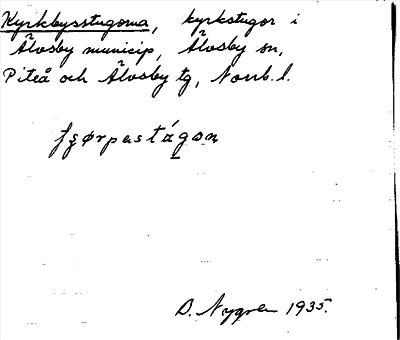 Kyrkbysstugorna, kyrkstugor i
Älvsby municip, Älvsby sn,
Piteå och Älvsby tg, Norrb. l.
D. Nygren 1935.